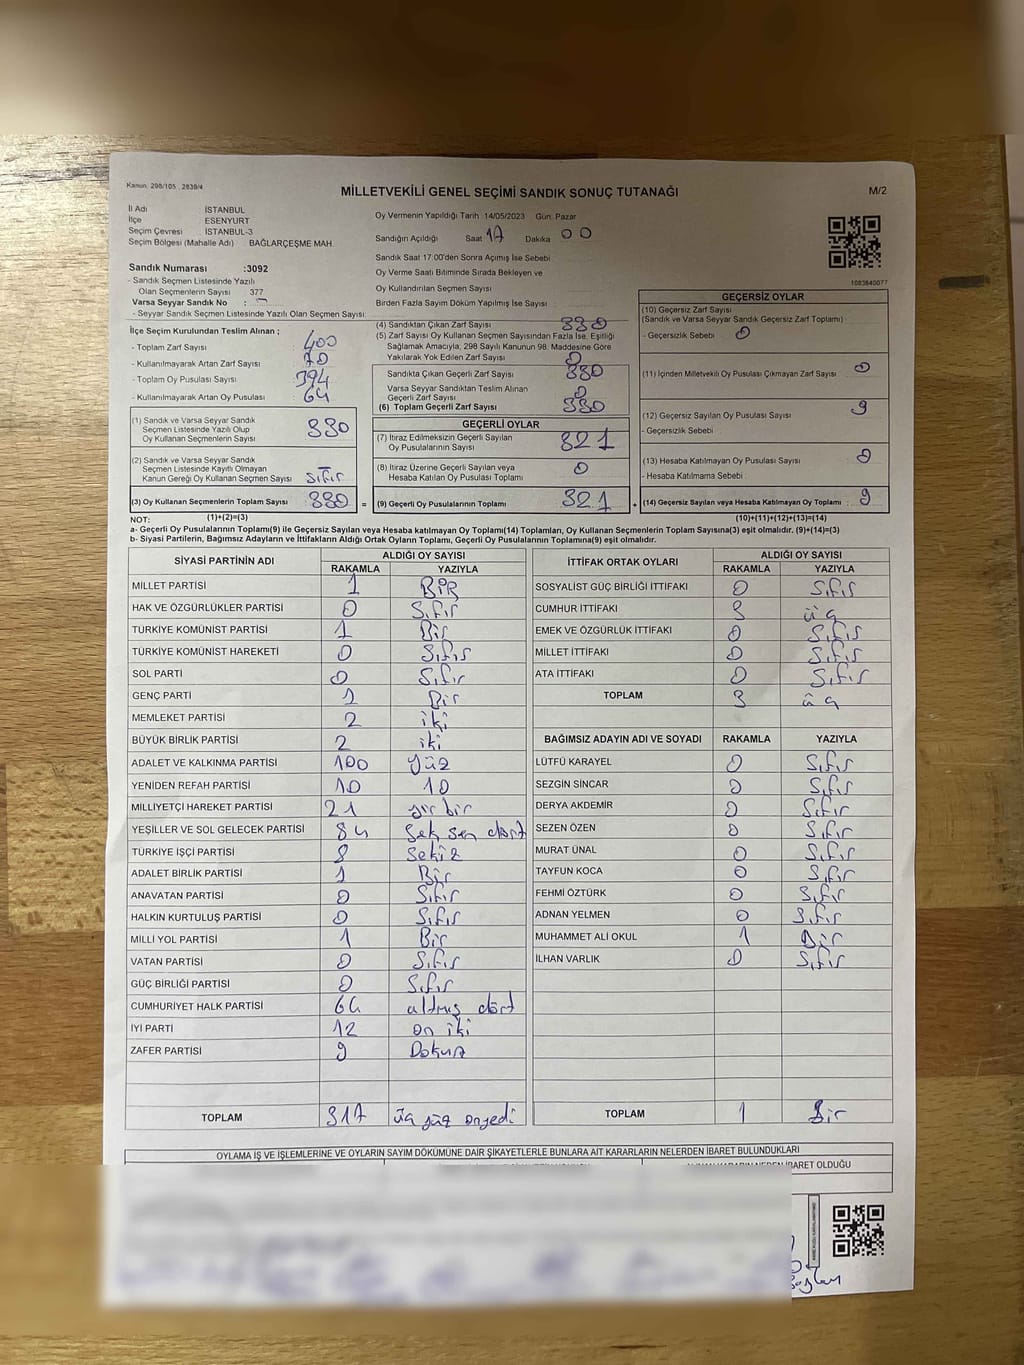 Kanun, 298/105 , 2839/4
MİLLETVEKİLİ GENEL SEÇİMİ SANDIK SONUÇ TUTANAĞI
M/2
İl Adı İSTANBUL
İlçe ESENYURT
Seçim Çevresi İSTANBUL-3
Seçim Bölgesi (Mahalle Adı) BAĞLARÇEŞME MAH.
Sandık Numarası :3092
- Sandık Seçmen Listesinde Yazılı
Olan Seçmenlerin Sayısı 377
Varsa Seyyar Sandık No : -
- Seyyar Sandık Seçmen Listesinde Yazılı Olan Seçmen Sayısı
Oy Vermenin Yapıldığı Tarih 14/05/2023 Gün. Pazar
Sandığın Açıldığı Saat 17 Dakika 00
Sandık Saat 17:00'den Sonra Açımış İse Sebebi
Oy Verme Saati Bitiminde Sırada Bekleyen ve
Oy Kullandırılan Seçmen Sayısı
Birden Fazla Sayım Döküm Yapılmış İse Sayısı
1083840077
İlçe Seçim Kurulundan Teslim Alınan ;
- Toplam Zarf Sayısı 400
- Kullanılmayarak Artan Zarf Sayısı 70
- Toplam Oy Pusulası Sayısı 394
- Kullanılmayarak Artan Oy Pusulası Sayısı 64
(1) Sandık ve Varsa Seyyar Sandık
Seçmen Listesinde Yazılı Olup
Oy Kullanan Seçmenlerin Sayısı 330
(2) Sandık ve Varsa Seyyar Sandık
Seçmen Listesinde Kayıtlı Olmayan
Kanun Gereği Oy Kullanan Seçmen Sayısı sıfır
(3) Oy Kullanan Seçmenlerin Toplam Sayısı 330 =
(4) Sandıktan Çıkan Zarf Sayısı 330
(5) Zarf Sayısı Oy Kullanan Seçmen Sayısından Fazla İse, Eşitliği
Sağlamak Amacıyla; 298 Sayılı Kanunun 98. Maddesine Göre
Yakılarak Yok Edilen Zarf Sayısı 0
Sandıkta Çıkan Geçerli Zarf Sayısı 330
Varsa Seyyar Sandıktan Teslim Alınan
Geçerli Zarf Sayısı 0
(6) Toplam Geçerli Zarf Sayısı 330
GEÇERLİ OYLAR
(7) İtiraz Edilmeksizin Geçerli Sayılan
Oy Pusulalarının Sayısı 321
(8) İtiraz Üzerine Geçerli Sayılan veya
Hesaba Katılan Oy Pusulası Toplamı 0
(9) Geçerli Oy Pusulalarının Toplamı 321 +
GEÇERSİZ OYLAR
(10) Geçersiz Zarf Sayısı
(Sandık ve Varsa Seyyar Sandık Geçersiz Zarf Toplamı)
- Geçersizlik Sebebi 0
(11) İçinden Milletvekili Oy Pusulası Çıkmayan Zarf Sayısı 0
(12) Geçersiz Sayılan Oy Pusulası Sayısı 9
- Geçersizlik Sebebi
(13) Hesaba Katılmayan Oy Pusulası Sayısı 0
- Hesaba Katılmama Sebebi
(14) Geçersiz Sayılan veya Hesaba Katılmayan Oy Toplamı : 9
NOT: (1)+(2)=(3) (10)+(11)+(12)+(13)=(14)
a- Geçerli Oy Pusulalarının Toplamı(9) ile Geçersiz Sayılan veya Hesaba katılmayan Oy Toplamı(14) Toplamları, Oy Kullanan Seçmenlerin Toplam Sayısına(3) eşit olmalıdır. (9)+(14)=(3)
b- Siyasi Partilerin, Bağımsız Adayların ve İttifakların Aldığı Ortak Oyların Toplamı, Geçerli Oy Pusulalarının Toplamına(9) eşit olmalıdır.
SİYASİ PARTİNİN ADI ALDIĞI OY SAYISI
RAKAMLA YAZIYLA
MİLLET PARTİSİ 1 BİR
HAK VE ÖZGÜRLÜKLER PARTİSİ 0 Sıfır
TÜRKİYE KOMÜNİST PARTİSİ 1 Bir
TÜRKİYE KOMÜNİST HAREKETİ 0 Sıfır
SOL PARTİ 0 Sıfır
GENÇ PARTİ 1 Bir
MEMLEKET PARTİSİ 2 iki
BÜYÜK BİRLİK PARTİSİ 2 iki
ADALET VE KALKINMA PARTİSİ 100 yüz
YENİDEN REFAH PARTİSİ 10 10
MİLLİYETÇİ HAREKET PARTİSİ 21 yir bir
YEŞİLLER VE SOL GELECEK PARTİSİ 84 Sek sen dört
TÜRKİYE İŞÇİ PARTİSİ 8 Sekiz
ADALET BİRLİK PARTİSİ 1 Bir
ANAVATAN PARTİSİ 0 Sıfır
HALKIN KURTULUŞ PARTİSİ 0 Sıfır
MİLLİ YOL PARTİSİ 1 Bir
VATAN PARTİSİ 0 Sıfır
GÜÇ BİRLİĞİ PARTİSİ 0 Sıfır
CUMHURİYET HALK PARTİSİ 64 altmış dört
İYİ PARTİ 12 on iki
ZAFER PARTİSİ 9 Dokuz
TOPLAM 317 üç yüz onyedi
İTTİFAK ORTAK OYLARI ALDIĞI OY SAYISI
RAKAMLA YAZIYLA
SOSYALİST GÜÇ BİRLİĞİ İTTİFAKI 0 Sıfır
CUMHUR İTTİFAKI 3 üç
EMEK VE ÖZGÜRLÜK İTTİFAKI 0 Sıfır
MİLLET İTTİFAKI 0 Sıfır
ATA İTTİFAKI 0 Sıfır
TOPLAM 3 üç
BAĞIMSIZ ADAYIN ADI VE SOYADI RAKAMLA YAZIYLA
LÜTFÜ KARAYEL 0 Sıfır
SEZGİN SİNCAR 0 Sıfır
DERYA AKDEMİR 0 Sıfır
SEZEN ÖZEN 0 Sıfır
MURAT ÜNAL 0 Sıfır
TAYFUN KOCA 0 Sıfır
FEHMİ ÖZTÜRK 0 Sıfır
ADNAN YELMEN 0 Sıfır
MUHAMMET ALİ OKUL 1 Bir
İLHAN VARLIK 0 Sıfır
TOPLAM 1 Bir
OYLAMA İŞ VE İŞLEMLERİNE VE OYLARIN SAYIM DÖKÜMÜNE DAİR ŞİKAYETLERLE BUNLARA AİT KARARLARIN NELERDEN İBARET BULUNDUKLARI
İBARET OLDUĞU